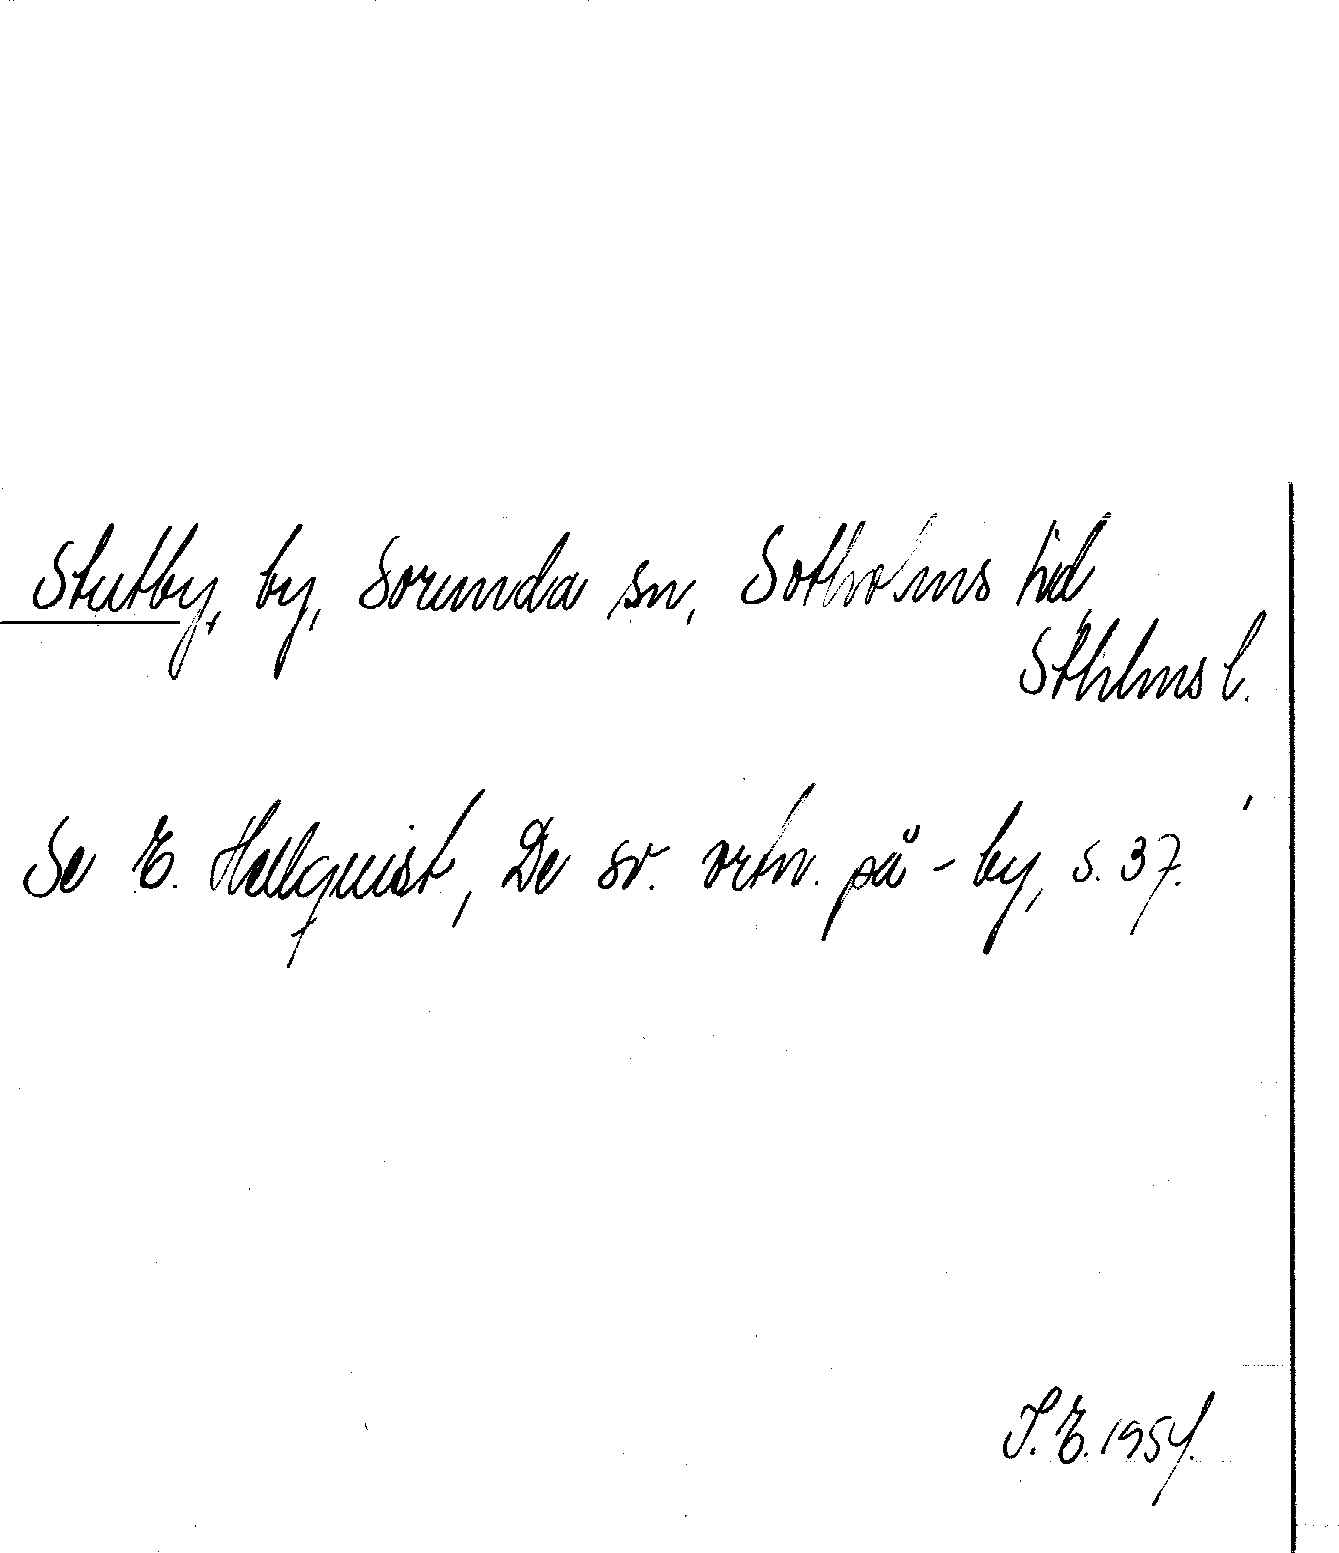 Stutby, by, Sorunda sn, Sotholms hd,
Sthlms l.
Se E. Hellquist, De sv. ortn. på -by, s. 37.
I. E. 1954.